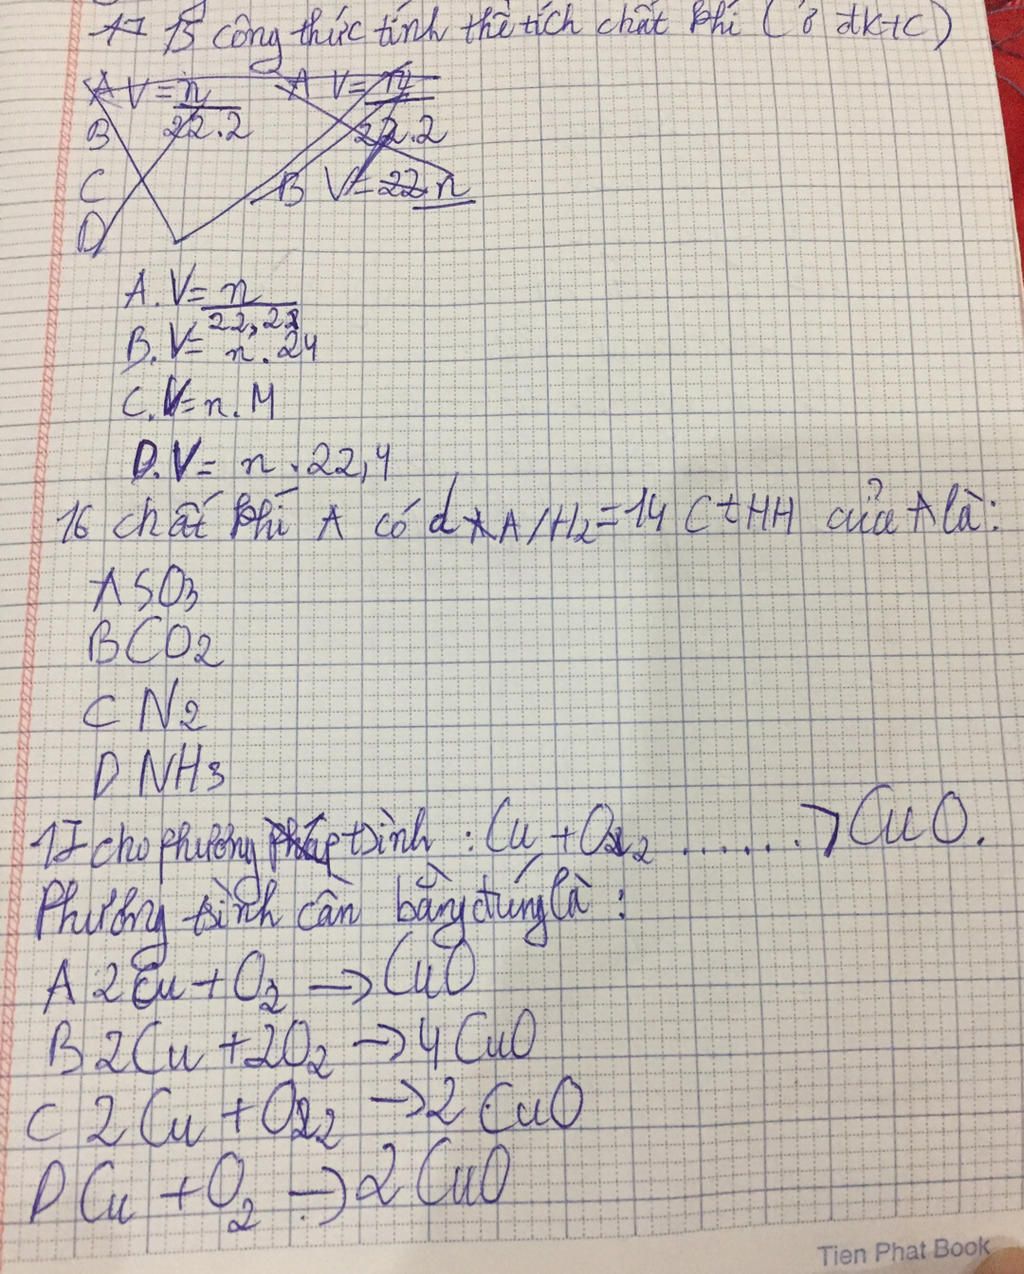 15 công thức tính thể tích chất khí (ở đktc)
A V = n
22.2
A V = n
22.2
B
C
B V = 22.n
D
A. V = n
22,22
B. V = n . 24
C. V = n . M
D. V = n . 22,4
16 chất khí A có d A/H2 = 14 CtHH của A là:
A SO3
B CO2
C N2
D NH3
17 cho phương trình : Cu + O2 ....... → CuO.
Phương trình cân bằng đúng là :
A 2Cu + O2 → CuO
B 2Cu + 2O2 → 4 CuO
C 2 Cu + O2 → 2 CuO
D Cu + O2 → 2 CuO
Tien Phat Book